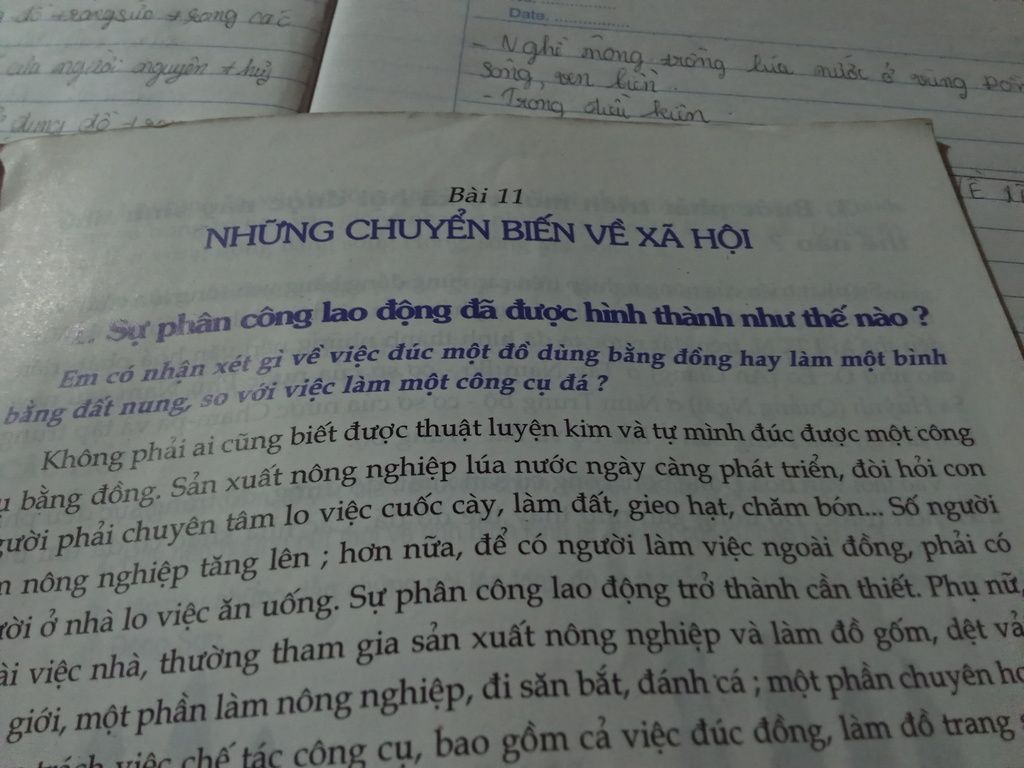 đồ trang sức trang các
của người nguyên thủy
dụng đồ
Date.
- Nghề nông trồng lúa nước ở vùng
sông, ven biển.
- Trong điều kiện
Bài 11
NHỮNG CHUYỂN BIẾN VỀ XÃ HỘI
Sự phân công lao động đã được hình thành như thế nào ?
Em có nhận xét gì về việc đúc một đồ dùng bằng đồng hay làm một bình
bằng đất nung, so với việc làm một công cụ đá ?
Không phải ai cũng biết được thuật luyện kim và tự mình đúc được một công
bằng đồng. Sản xuất nông nghiệp lúa nước ngày càng phát triển, đòi hỏi con
người phải chuyên tâm lo việc cuốc cày, làm đất, gieo hạt, chăm bón... Số người
nông nghiệp tăng lên ; hơn nữa, để có người làm việc ngoài đồng, phải có
ở nhà lo việc ăn uống. Sự phân công lao động trở thành cần thiết. Phụ nữ,
việc nhà, thường tham gia sản xuất nông nghiệp và làm đồ gốm, dệt vải
giới, một phần làm nông nghiệp, đi săn bắt, đánh cá ; một phần chuyên
trách việc chế tác công cụ, bao gồm cả việc đúc đồng, làm đồ trang